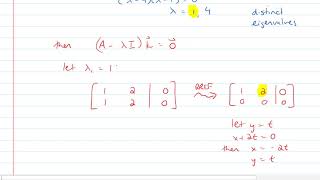 λ = 1, 4
distinct
eigenvalues
then (A - λI) k⃗ = 0⃗
let λ₁ = 1:
[ 1 2 | 0 ] RREF [ 1 2 | 0 ]
[ 1 2 | 0 ] [ 0 0 | 0 ]
let y = t
x + 2t = 0
then x = -2t
y = t